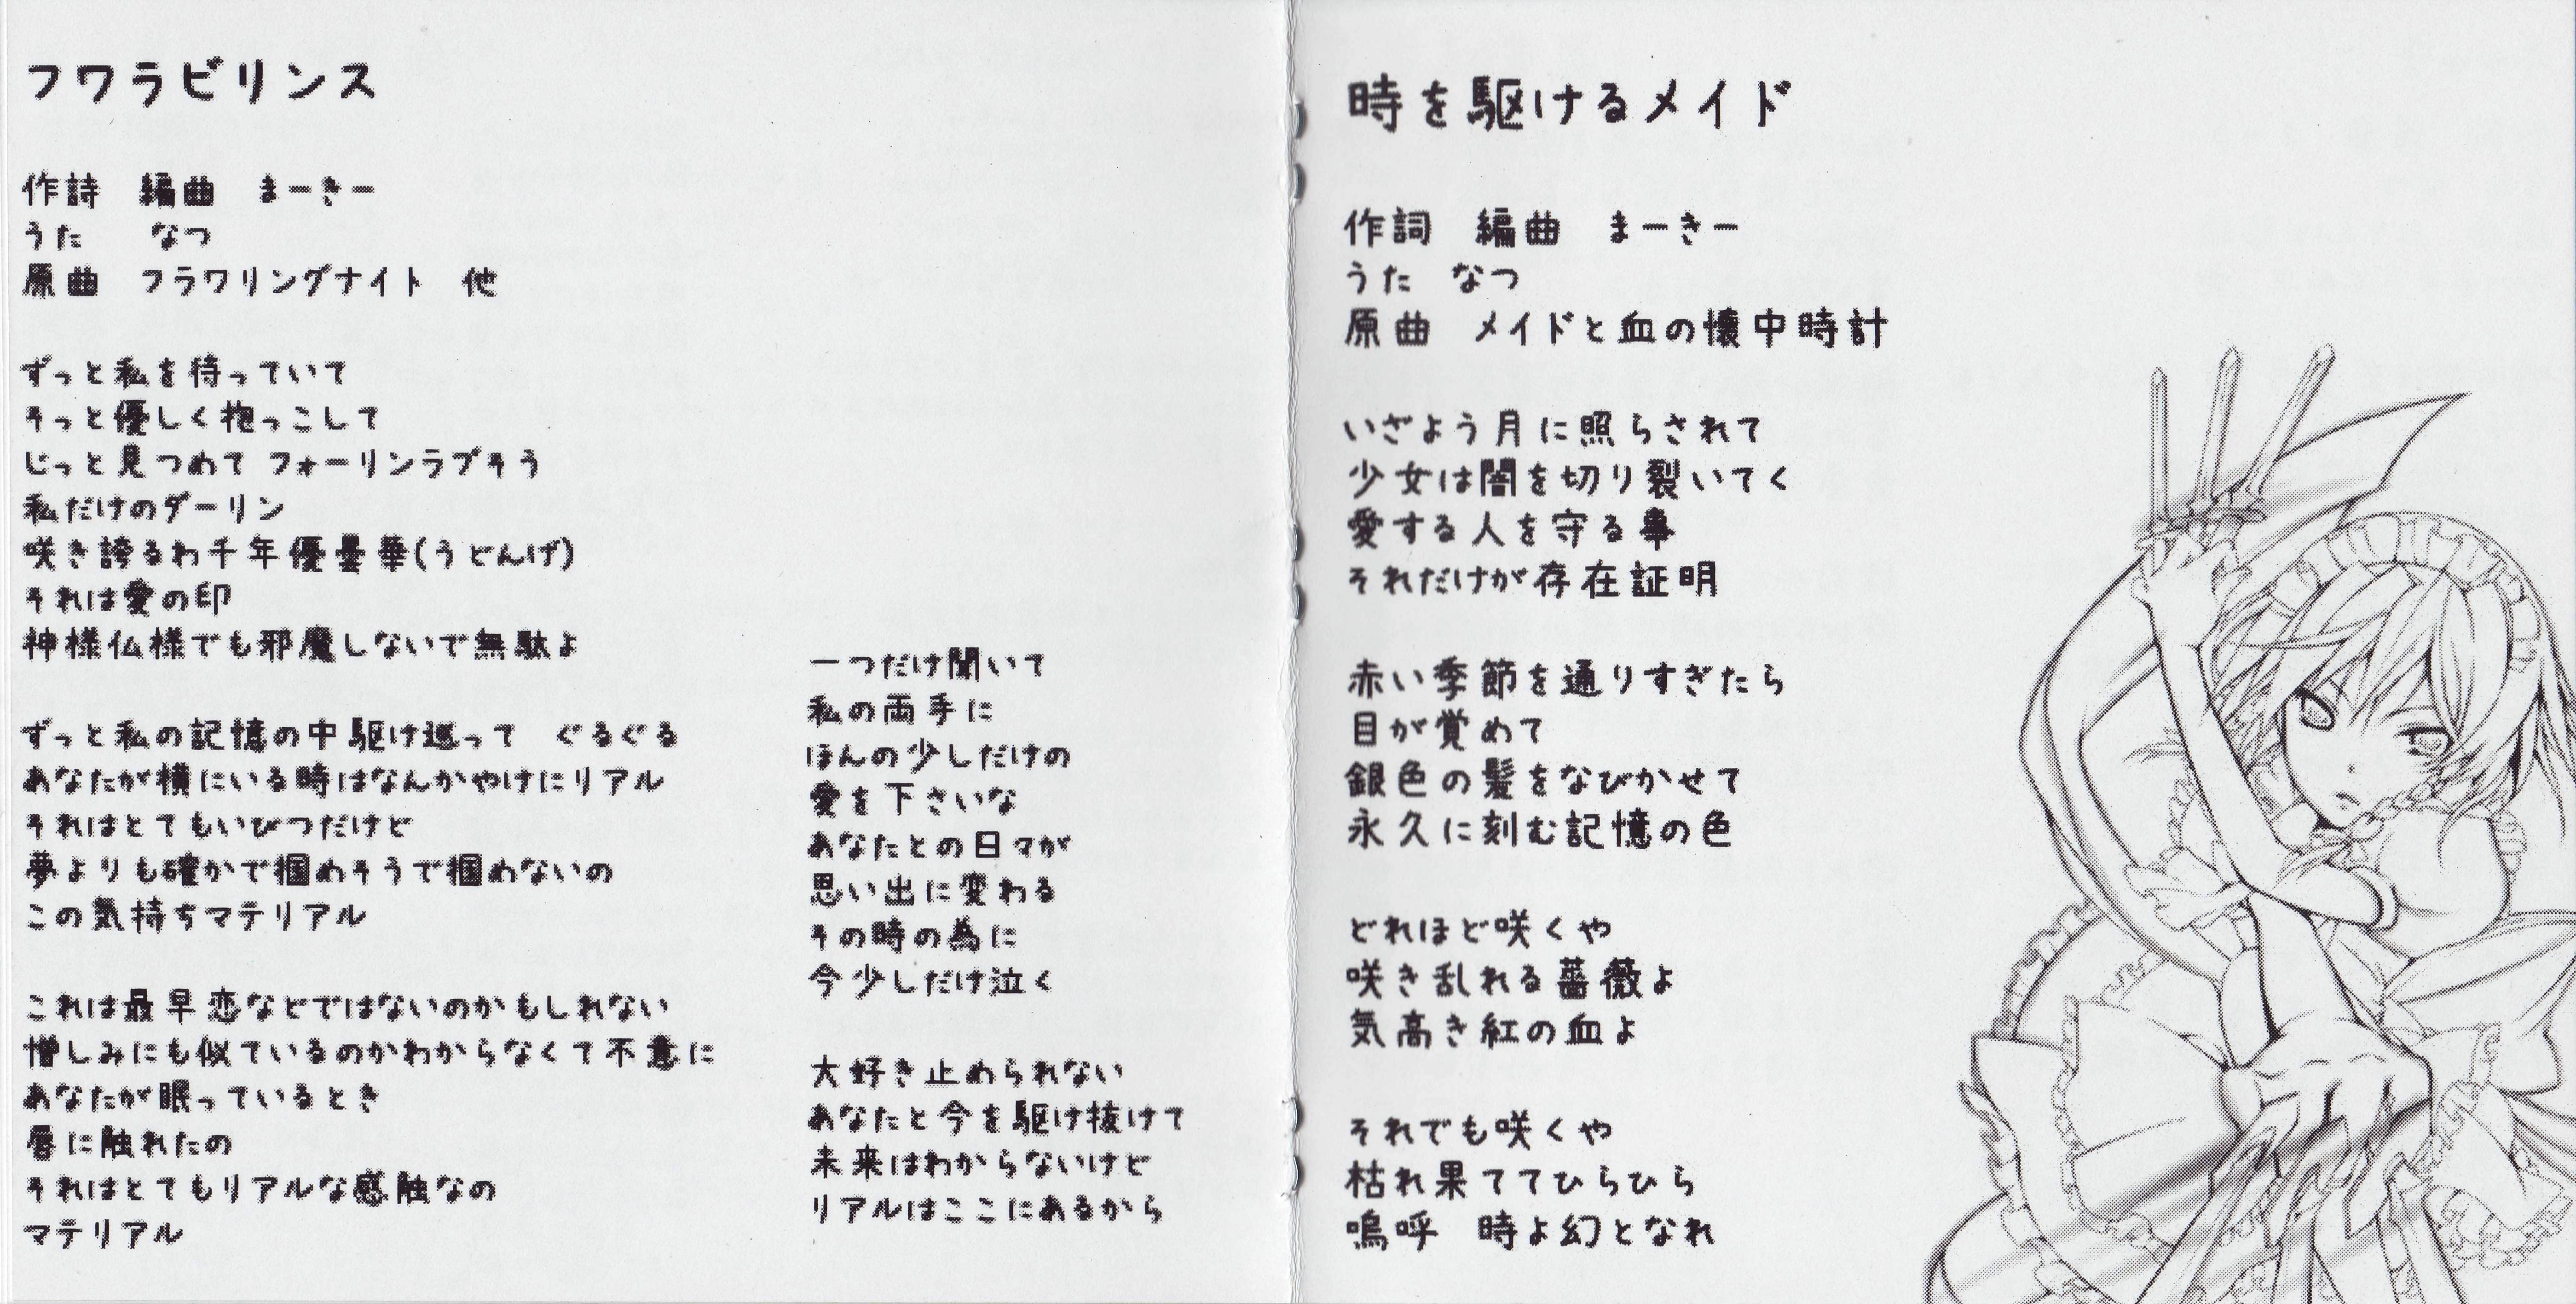 フワラビリンス
作詩　編曲　まーきー
うた　なつ
原曲　フラワリングナイト　他
ずっと私を待っていて
そっと優しく抱っこして
じっと見つめて フォーリンラブそう
私だけのダーリン
咲き誇るわ千年優曇華(うどんげ)
それは愛の印
神様仏様でも邪魔しないで無駄よ
ずっと私の記憶の中駆け巡って　ぐるぐる
あなたが横にいる時はなんかやけにリアル
それはとてもいびつだけど
夢よりも確かで掴めそうで掴めないの
この気持ちマテリアル
これは最早恋などではないのかもしれない
憎しみにも似ているのかわからなくて不意に
あなたが眠っているとき
唇に触れたの
それはとてもリアルな感触なの
マテリアル
一つだけ聞いて
私の両手に
ほんの少しだけの
愛を下さいな
あなたとの日々が
思い出に変わる
その時の為に
今少しだけ泣く
大好き止められない
あなたと今を駆け抜けて
未来はわからないけど
リアルはここにあるから
時を駆けるメイド
作詞　編曲　まーきー
うた　なつ
原曲　メイドと血の懐中時計
いざよう月に照らされて
少女は闇を切り裂いてく
愛する人を守る事
それだけが存在証明
赤い季節を通りすぎたら
目が覚めて
銀色の髪をなびかせて
永久に刻む記憶の色
どれほど咲くや
咲き乱れる薔薇よ
気高き紅の血よ
それでも咲くや
枯れ果ててひらひら
嗚呼　時よ幻となれ